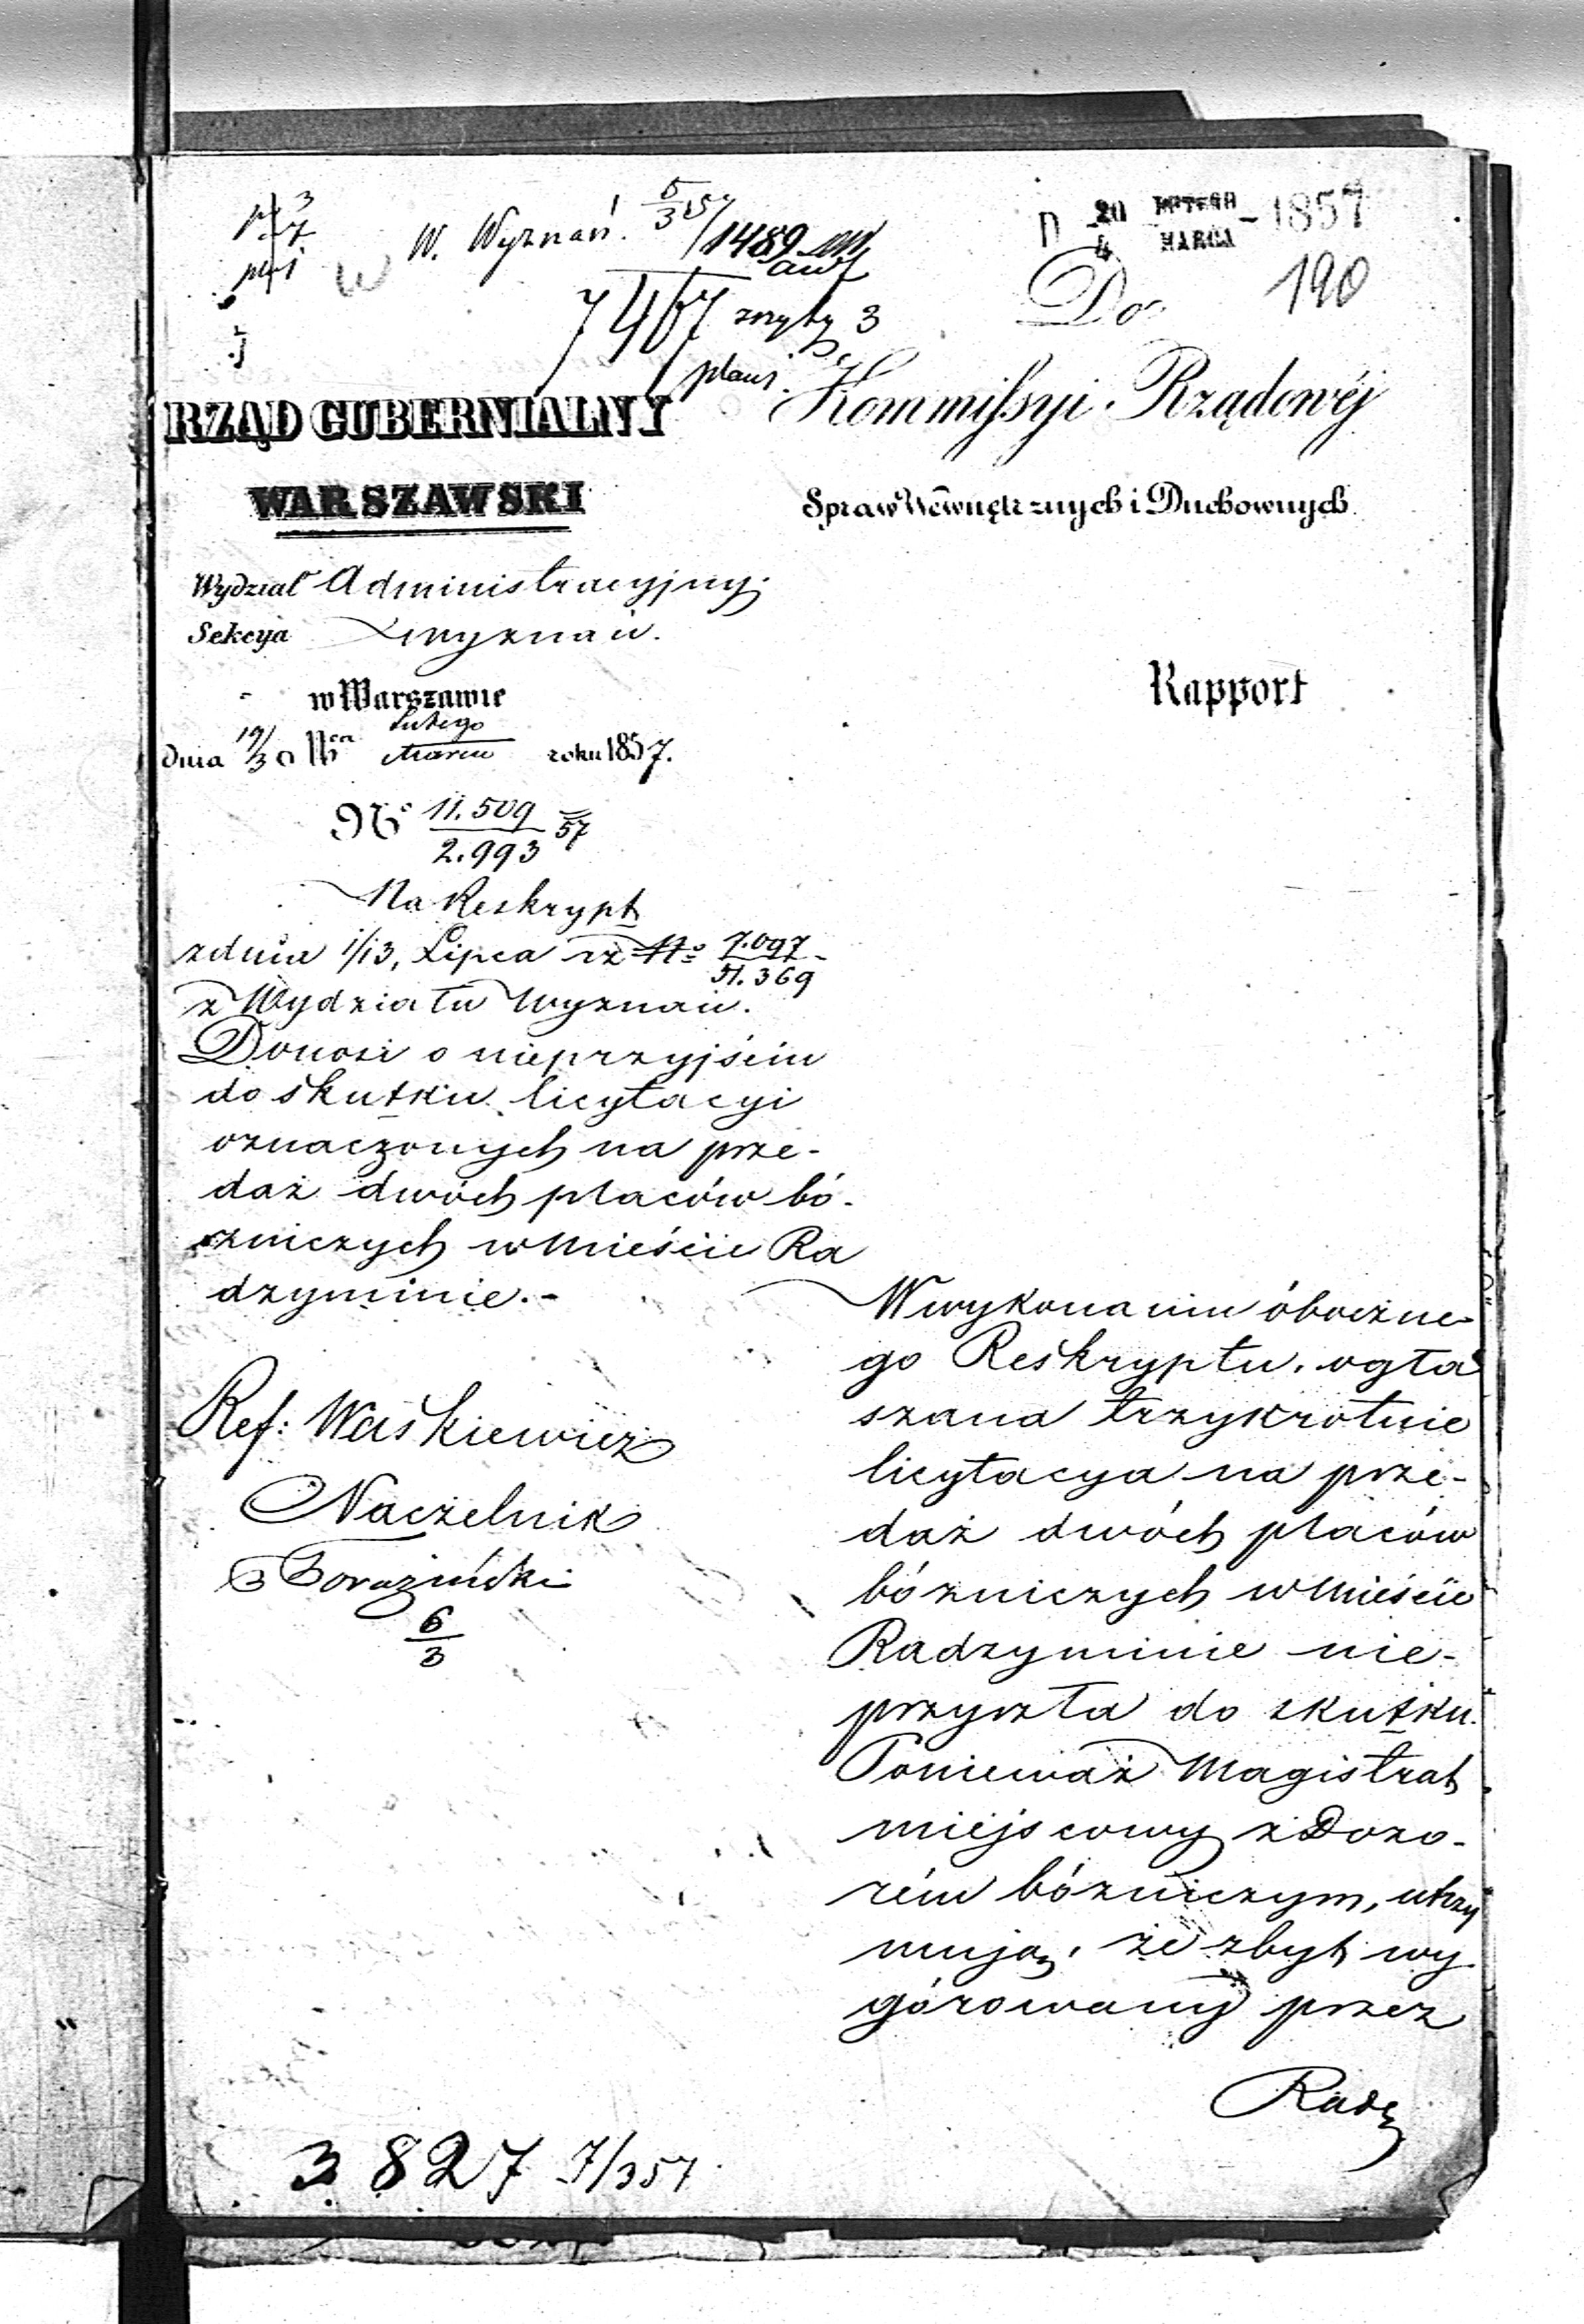 W. Wyznań. 5/3 57/1489
D 20 LUTEGO / 4 MARCA - 1857
190
7467
3
plany
Do
Kommissyi Rządowéj
Spraw Wewnętrznych i Duchownych
RZĄD GUBERNIALNY
WARSZAWSKI
Wydział Administracyjny.
Sekcya Wyznań.
w Warszawie
Dnia 19/3 Lutego / Marca roku 1857.
Rapport
No 11.509 / 2.993 57
Na Reskrypt
z dnia 1/13, Lipca rz No 7.097 / 51.369
z Wydziału Wyznań.
Donosi o nieprzyjściu
do skutku licytacyi
oznaczonych na prze-
daż dwóch placów bó-
zniczych w Mieście Ra
dzyminie.-
Ref: Waśkiewicz
Naczelnik
6/3
W wykonaniu óboczne-
go Reskryptu, ogła
szana trzykrotnie
licytacya na prze-
daż dwóch placów
bózniczych w Mieście
Radzyminie nie-
przyszła do skutku.
Ponieważ Magistrat
miejscowy z Dozo-
rém bózniczym, utrzy
mują, że zbyt wy
górowany przez
Radę
3827 7/3 57